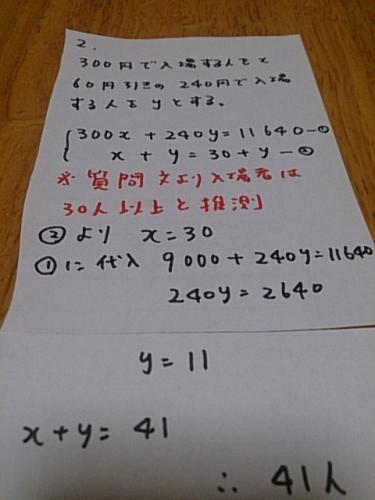 2.
300円で入場する人をx
60円引きの240円で入場
する人をyとする。
300x + 240y = 11640 ー①
x + y = 30 + y ー②
※質問文より入場者は
30人以上と推測
②より x = 30
①に代入 9000 + 240y = 11640
240y = 2640
y = 11
x + y = 41
∴ 41人